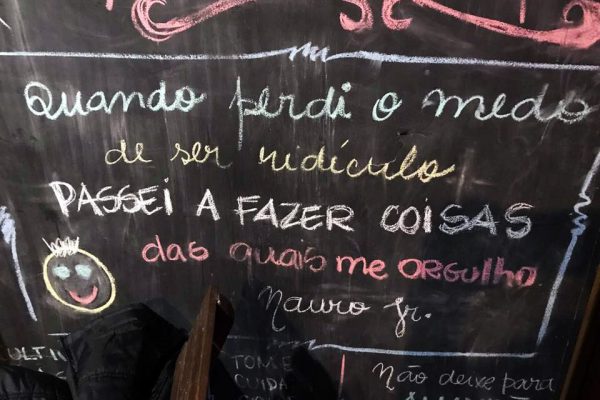 Quando perdi o medo
de ser ridículo
PASSEI A FAZER COISAS
das quais me ORGULHO
Mauro Jr.
TOME
CUIDA
Não deixe para